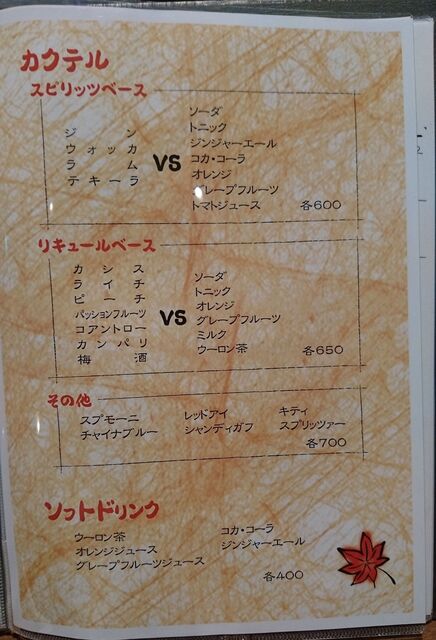 カクテル
スピリッツベース
ジン
ウォッカ
ラム
テキーラ
VS
ソーダ
トニック
ジンジャーエール
コカ・コーラ
オレンジ
グレープフルーツ
トマトジュース 各600
リキュールベース
カシス
ライチ
ピーチ
パッションフルーツ
コアントロー
カンパリ
梅酒
VS
ソーダ
トニック
オレンジ
グレープフルーツ
ミルク
ウーロン茶 各650
その他
スプモーニ レッドアイ キティ
チャイナブルー シャンディガフ スプリッツァー
各700
ソフトドリンク
ウーロン茶 コカ・コーラ
オレンジジュース ジンジャーエール
グレープフルーツジュース
各400